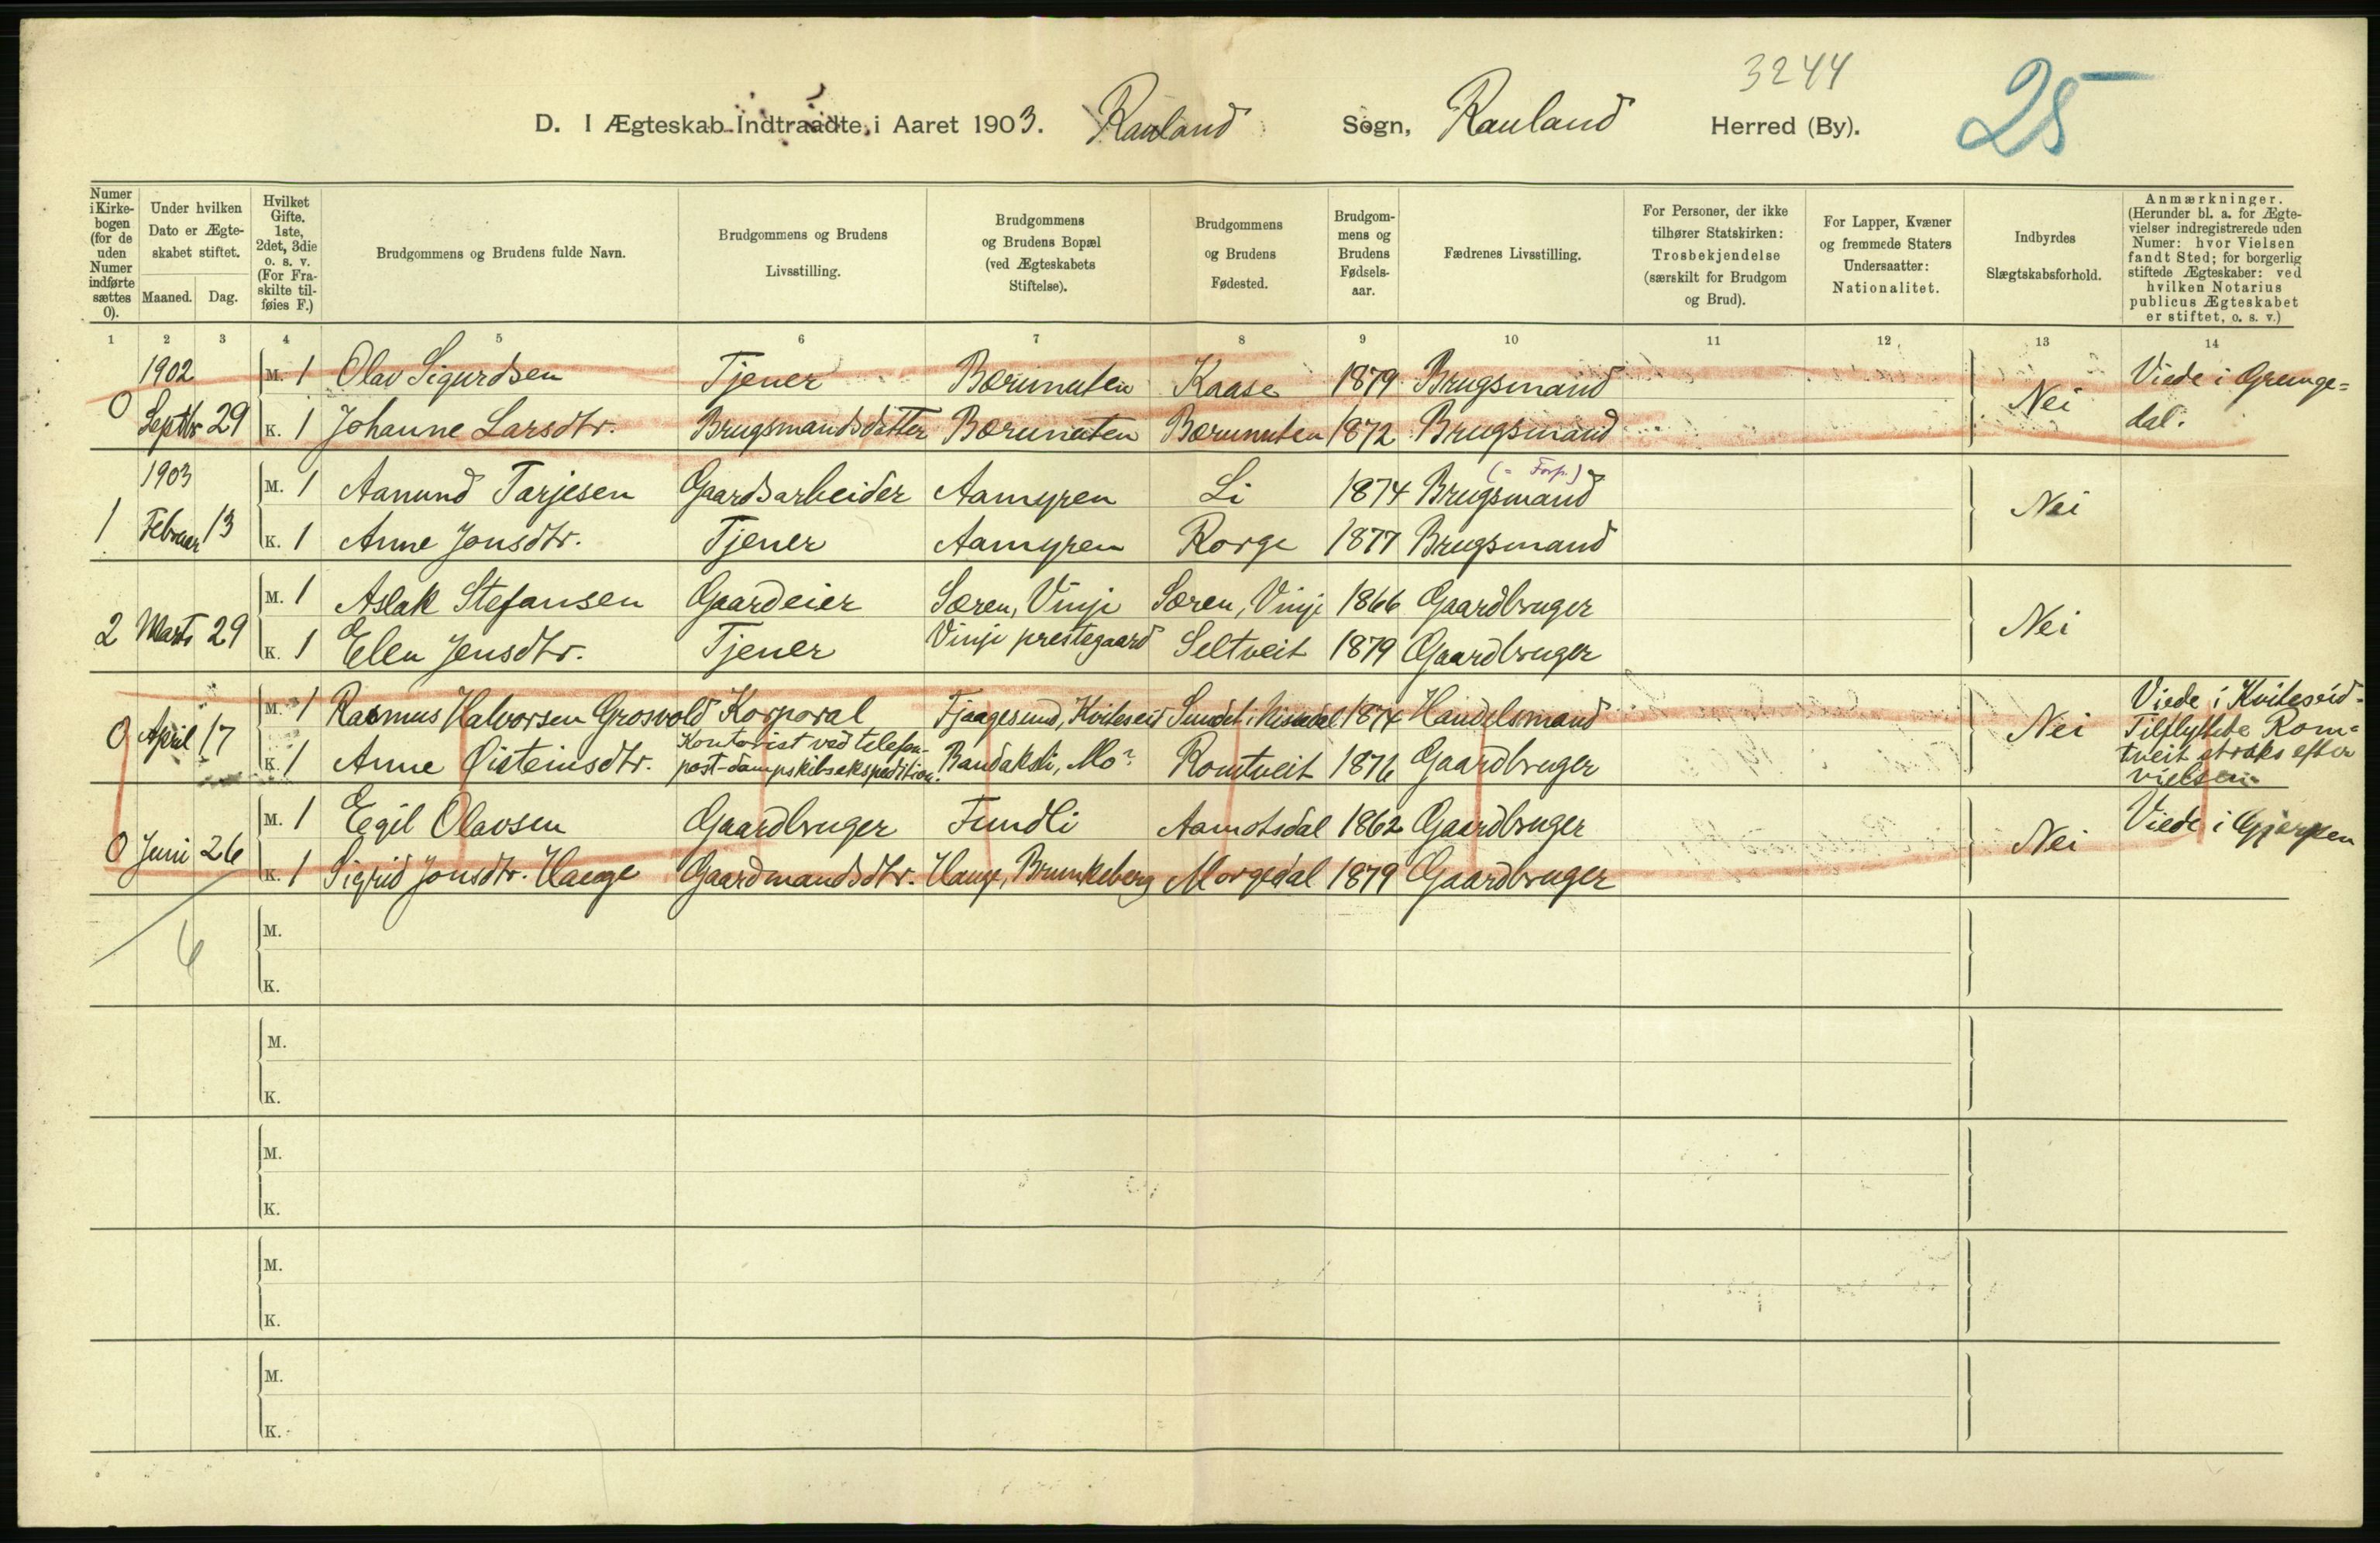 3244
25
D. I Ægteskab Indtraadte i Aaret 1903. Rauland Sogn, Rauland Herred (By).
Numer i Kirkebogen (for de uden Numer indførte sættes 0).
Under hvilken Dato er Ægteskabet stiftet.
Maaned. Dag.
Hvilket Gifte. 1ste, 2det, 3die o. s. v. (For Fraskilte tilføies F.)
Brudgommens og Brudens fulde Navn.
Brudgommens og Brudens Livsstilling.
Brudgommens og Brudens Bopæl (ved Ægteskabets Stiftelse).
Brudgommens og Brudens Fødested.
Brudgommens og Brudens Fødselsaar.
Fædrenes Livsstilling.
For Personer, der ikke tilhører Statskirken: Trosbekjendelse (særskilt for Brudgom og Brud).
For Lapper, Kvæner og fremmede Staters Undersaatter: Nationalitet.
Indbyrdes Slægtskabsforhold.
Anmærkninger. (Herunder bl. a. for Ægtevielser indregistrerede uden Numer: hvor Vielsen fandt Sted; for borgerlig stiftede Ægteskaber: ved hvilken Notarius publicus Ægteskabet er stiftet, o. s. v.)
1 2 3 4 5 6 7 8 9 10 11 12 13 14
1902 M. 1 Olav Sigurdsen Tjener Børunuten Kaase 1879 Brugsmand Viede i Grunge-
0 Septbr 29 K. 1 Johanne Larsdtr. Brugsmandsdatter Børunuten Børunuten 1872 Brugsmand Nei dal.
1903 M. 1 Aanund Tarjesen Gaardsarbeider Aamyren Li 1874 Brugsmand (= Forp.)
1 Februar 13 K. 1 Anne Jonsdtr. Tjener Aamyren Rorge 1877 Brugsmand Nei
M. 1 Aslak Stefansen Gaardeier Særen, Vinje Særen, Vinje 1866 Gaardbruger
2 Marts 29 K. 1 Elen Jensdtr. Tjener Vinje prestegaard Seltveit 1879 Gaardbruger Nei
M. 1 Rasmus Halvorsen Grosvold Korporal Fjaagesund, Kviteseid Sundet i Nissedal 1874 Handelsmand Viede i Kviteseid.
0 April 17 K. 1 Anne Øisteinsdtr. Kontorist ved telefon- post-dampskibsekspedition. Bandaksli, Mo Romtveit 1876 Gaardbruger Nei Tilflyttede Rom-
tveit straks efter
vielsen.
M. 1 Egil Olavsen Gaardbruger Fundli Aamotsdal 1862 Gaardbruger Viede i Gjerpen
0 Juni 26 K. 1 Sigrid Jonsdtr. Hauge Gaardmandsdtr. Hauge, Brunkeberg Morgedal 1879 Gaardbruger Nei
M.
6
K.
M.
K.
M.
K.
M.
K.
M.
K.